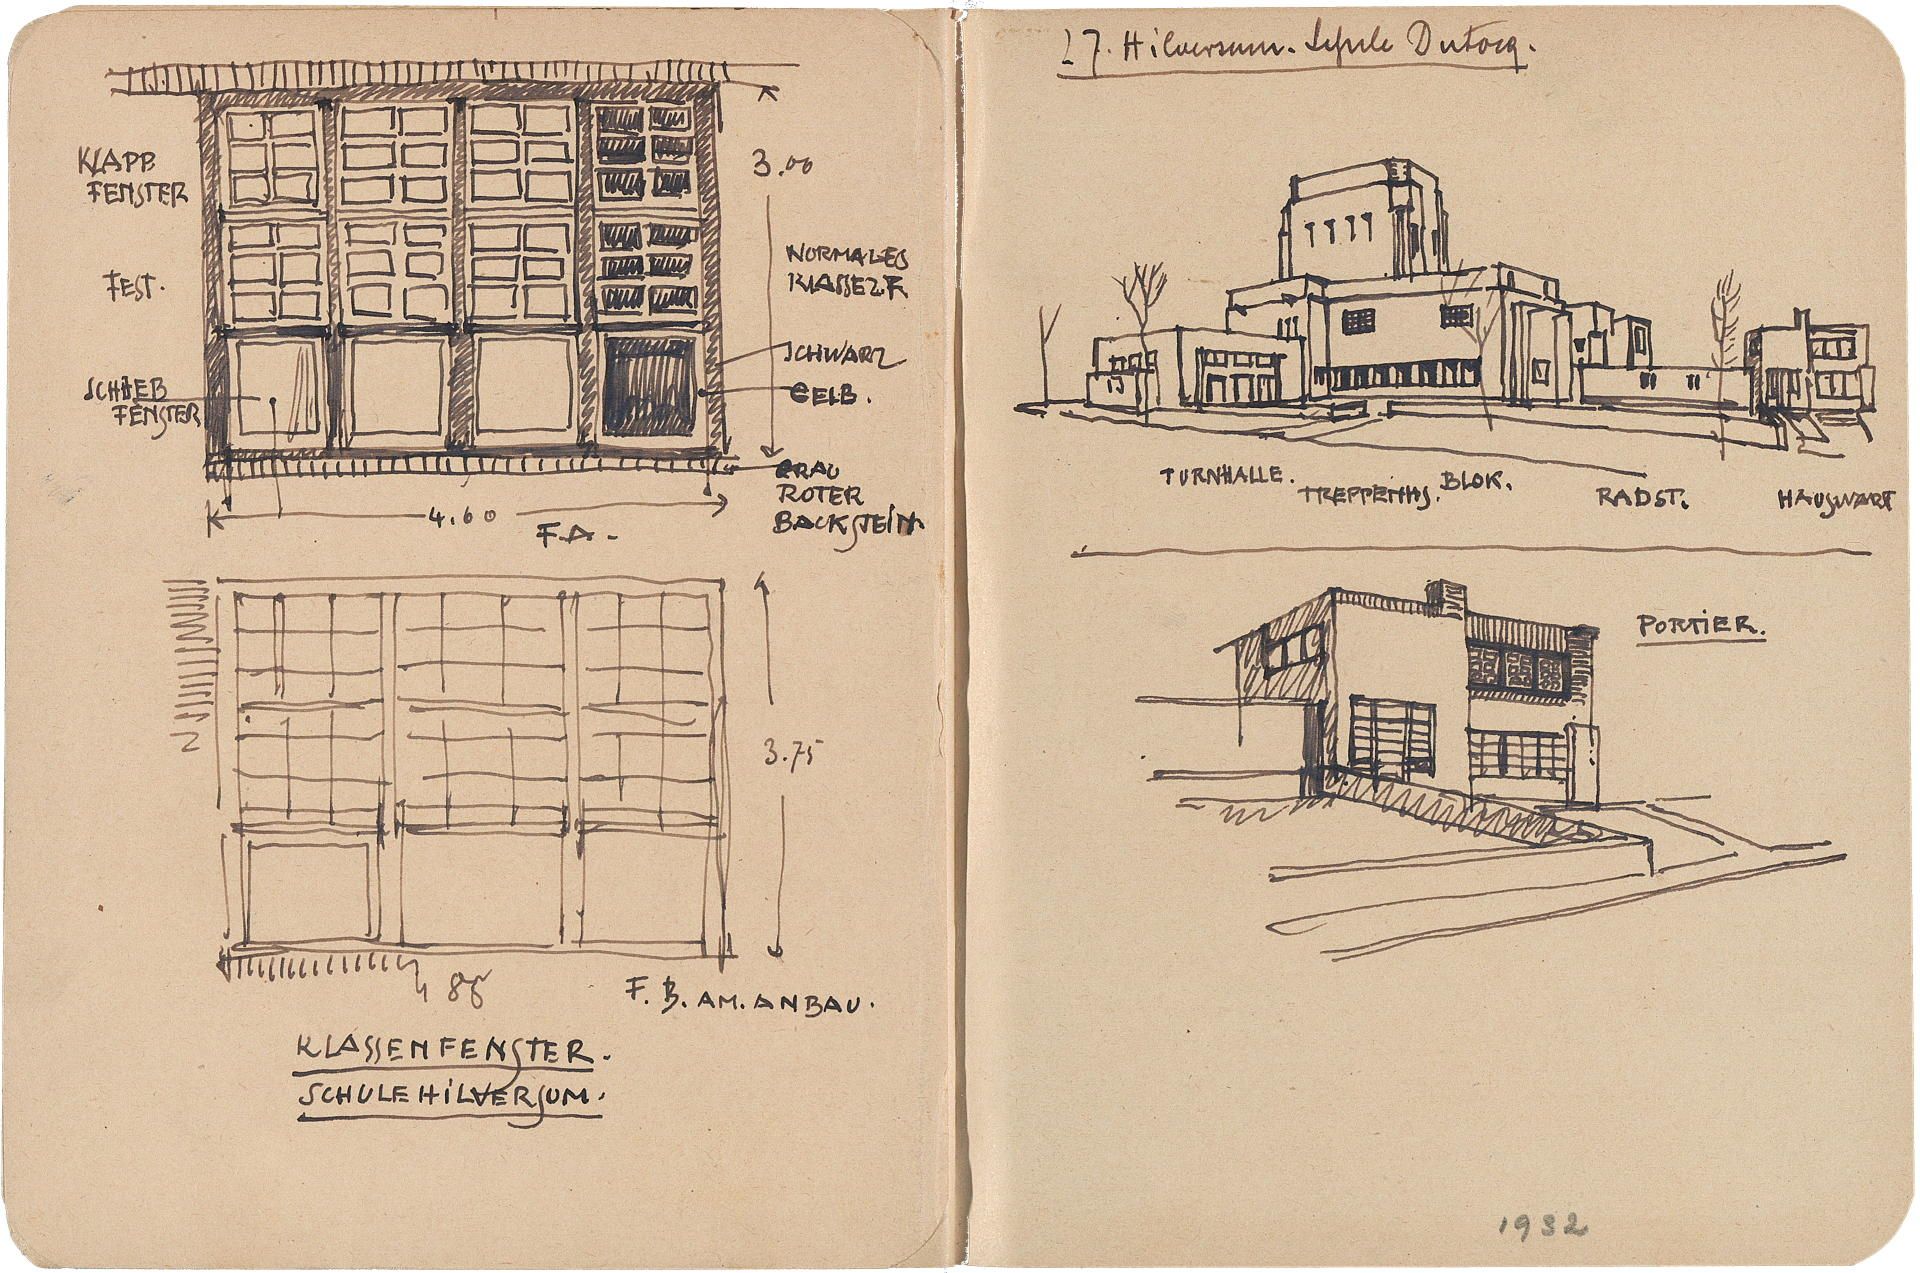 KLAPP
FENSTER
FEST.
SCHIEB
FENSTER
3.00
NORMALES
KLASSEZF
SCHWARZ
GELB.
GRAU
ROTER
BACKSTEIN.
4.60
F.A.
3.75
4 86
F. B. AM. ANBAU.
KLASSENFENSTER.
SCHULE HILVERSUM.
27. Hilversum. Schule Dudocq.
TURNHALLE.
TREPPENHS.
BLOK.
RADST.
HAUSWART
PORTIER.
1932